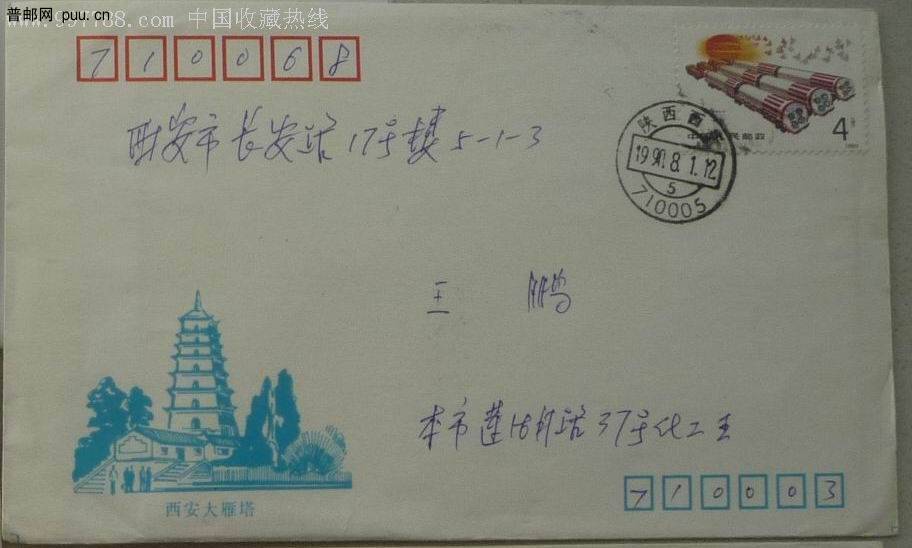 普邮网 puu.cn
www.997788.com 中国收藏热线
710068
西安市长安路17号楼5-1-3
陕西西安
1990.8.1.12
5
710005
4分
王 鹏
本市莲湖路37号化工王
710003
西安大雁塔